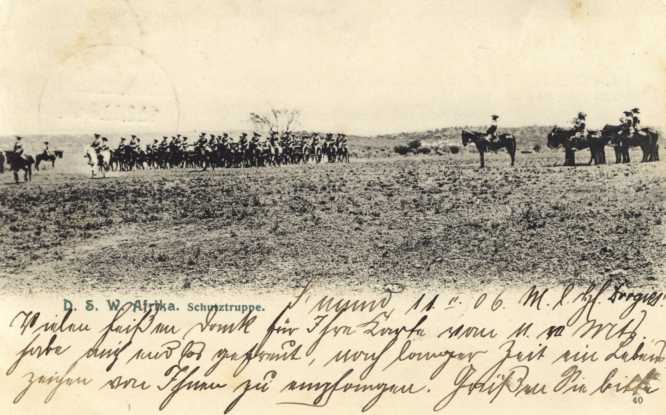 D. S. W. Afrika. Schutztruppe.
11 II 06
Vielen heißen Dank für Ihre Karte vom 11. v Mts,
habe mich endlos gefreut, nach langer Zeit ein Lebens
zeichen von Ihnen zu empfangen. Grüßen Sie bitte
40